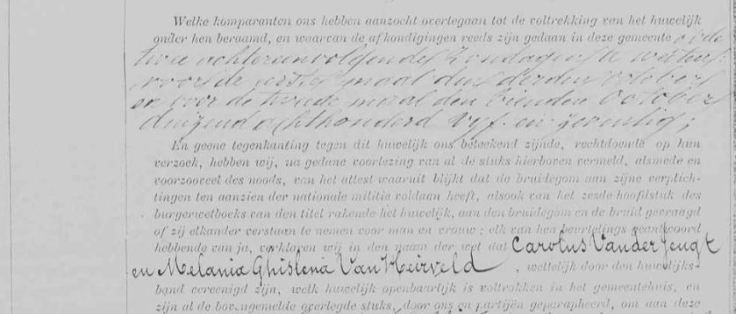 Welke komparanten ons hebben aanzocht overtegaan tot de voltrekking van het huwelijk
onder hen beraamd, en waarvan de afkondigingen reeds zijn gedaan in deze gemeente op de
twee achtereenvolgende Zondagen te weten:
voor de eerste maal den derden october
en voor de tweede maal den tienden October
duizend achthonderd vyf en zeventig;
En geene tegenkanting tegen dit huwelijk ons beteekend zijnde, rechtdoende op hun
verzoek, hebben wij, na gedane voorlezing van al de stuks hierboven vermeld, alsmede en
voorzooveel des noods, van het attest waaruit blijkt dat de bruidegom aan zijne verplich-
tingen ten aanzien der nationale militie voldaan heeft, alsook van het zesde hoofdstuk des
burgerwetboeks van den titel rakende het huwelijk, aan den bruidegom en de bruid gevraagd
of zij elkander verstaan te nemen voor man en vrouw; elk van hen beurtelings geantwoord
hebbende van ja, verklaren wij in den naam der wet dat Carolus Vander Jeugt
en Melania Ghislena Van Heirveld, wettelijk door den huwelijks-
band vereenigd zijn, welk huwelijk openbaarlijk is voltrokken in het gemeentehuis, en
zijn al de bovengemelde overlegde stuks, door ons en partijën geparapheerd, om aan deze